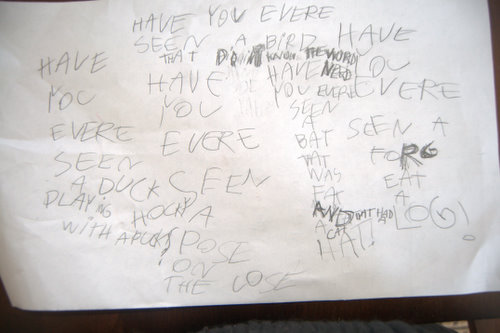 HAVE YOU EVERE
SEEN A BIRD
THAT DON'T KNOW THE WORD
HAVE
YOU
EVERE
SEEN
A DUCK
PLAYING HOCKY
WITH A PUCK?
HAVE
YOU
EVERE
SEEN
A
POSE
ON
THE LOSE
HAVE
YOU EVERE
SEEN
A
BAT
THAT
WAS
FAT
AND THAT HAD
A CAT
HAT!
HAVE
YOU
EVERE
SEEN A
FORG
EAT
A
LOG!